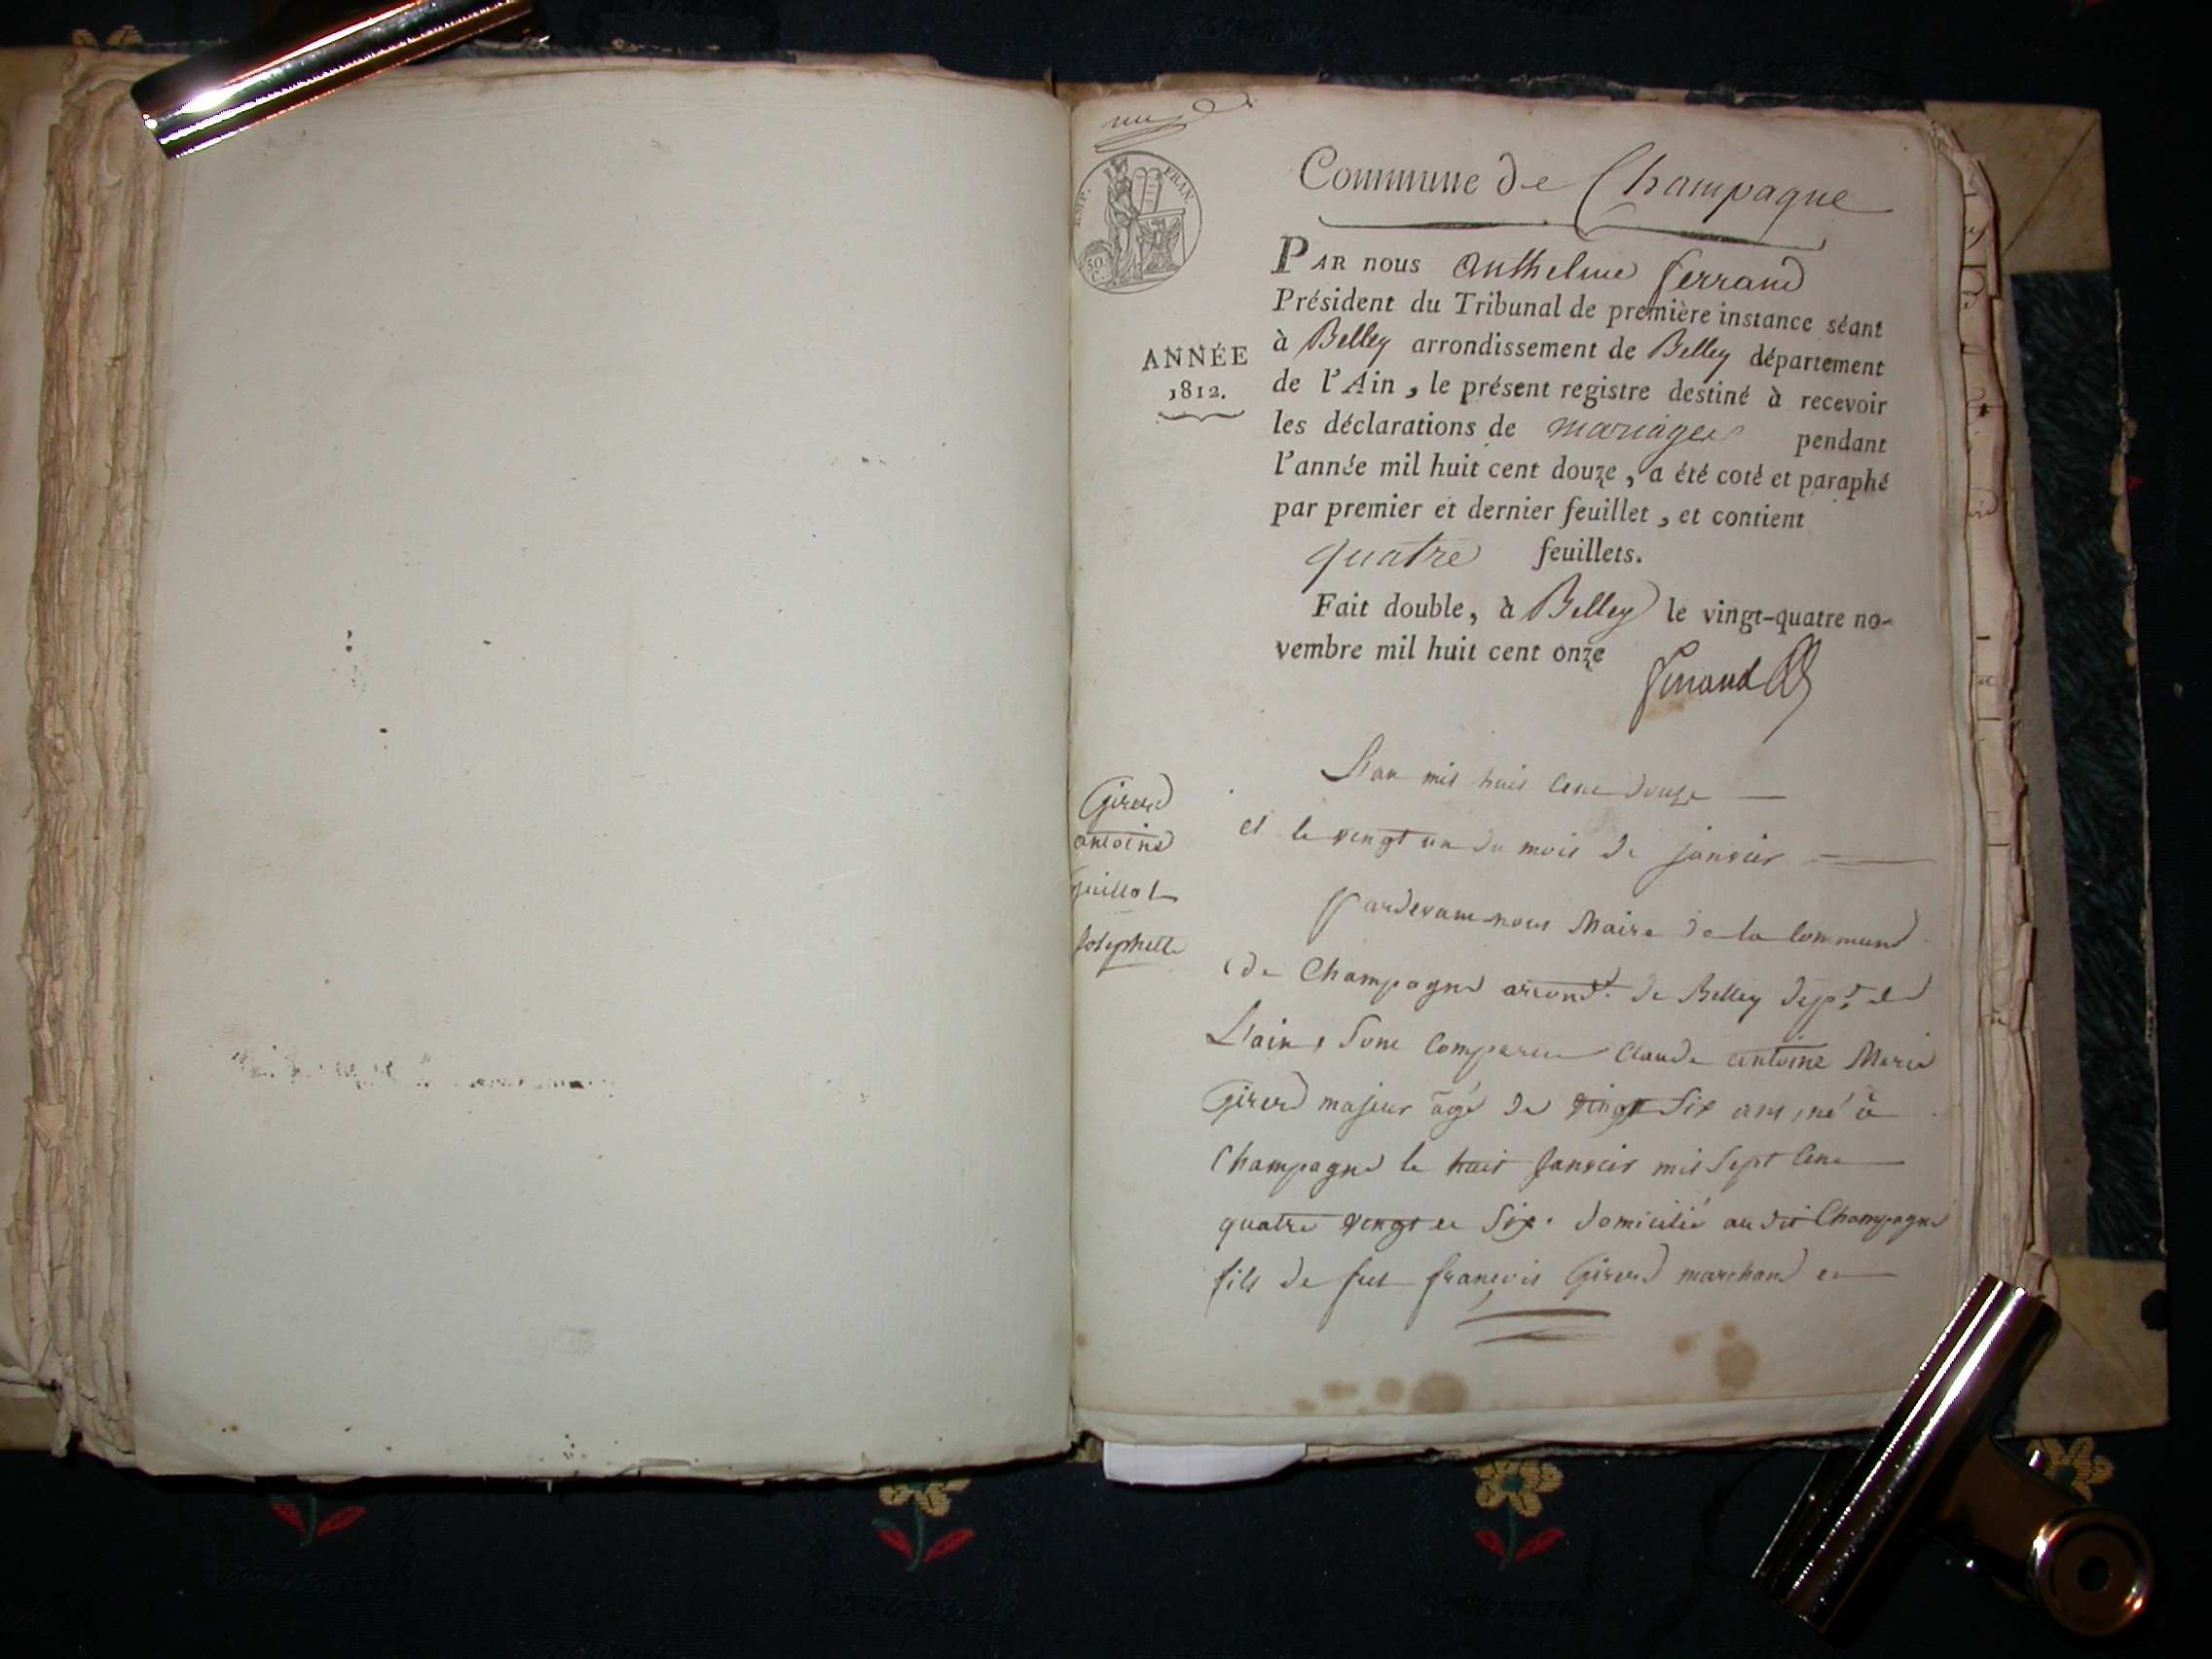 EMP. FRAN.
50
C.
Commune de Champagne
ANNÉE
1812.
PAR nous Anthelme ferrand
Président du Tribunal de première instance séant
à Belley arrondissement de Belley département
de l'Ain, le présent registre destiné à recevoir
les déclarations de mariages pendant
l'année mil huit cent douze, a été coté et paraphé
par premier et dernier feuillet, et contient
quatre feuillets.
Fait double, à Belley le vingt-quatre no-
vembre mil huit cent onze
ferrand
Girerd
antoine
Guillot
Josephette
L'an mil huit Cent douze
et le vingt un du mois de janvier
Pardevant nous Maire de la Commune
de Champagne arrondt. de Belley dept. de
L'ain, Sont Comparus Claude antoine Marie
Girerd majeur âgé de vingt Six ans, né à
Champagne le huit Janvier mil Sept Cent
quatre vingt et Six. domicilié au dit Champagne
fils de feu françois Girerd marchand et